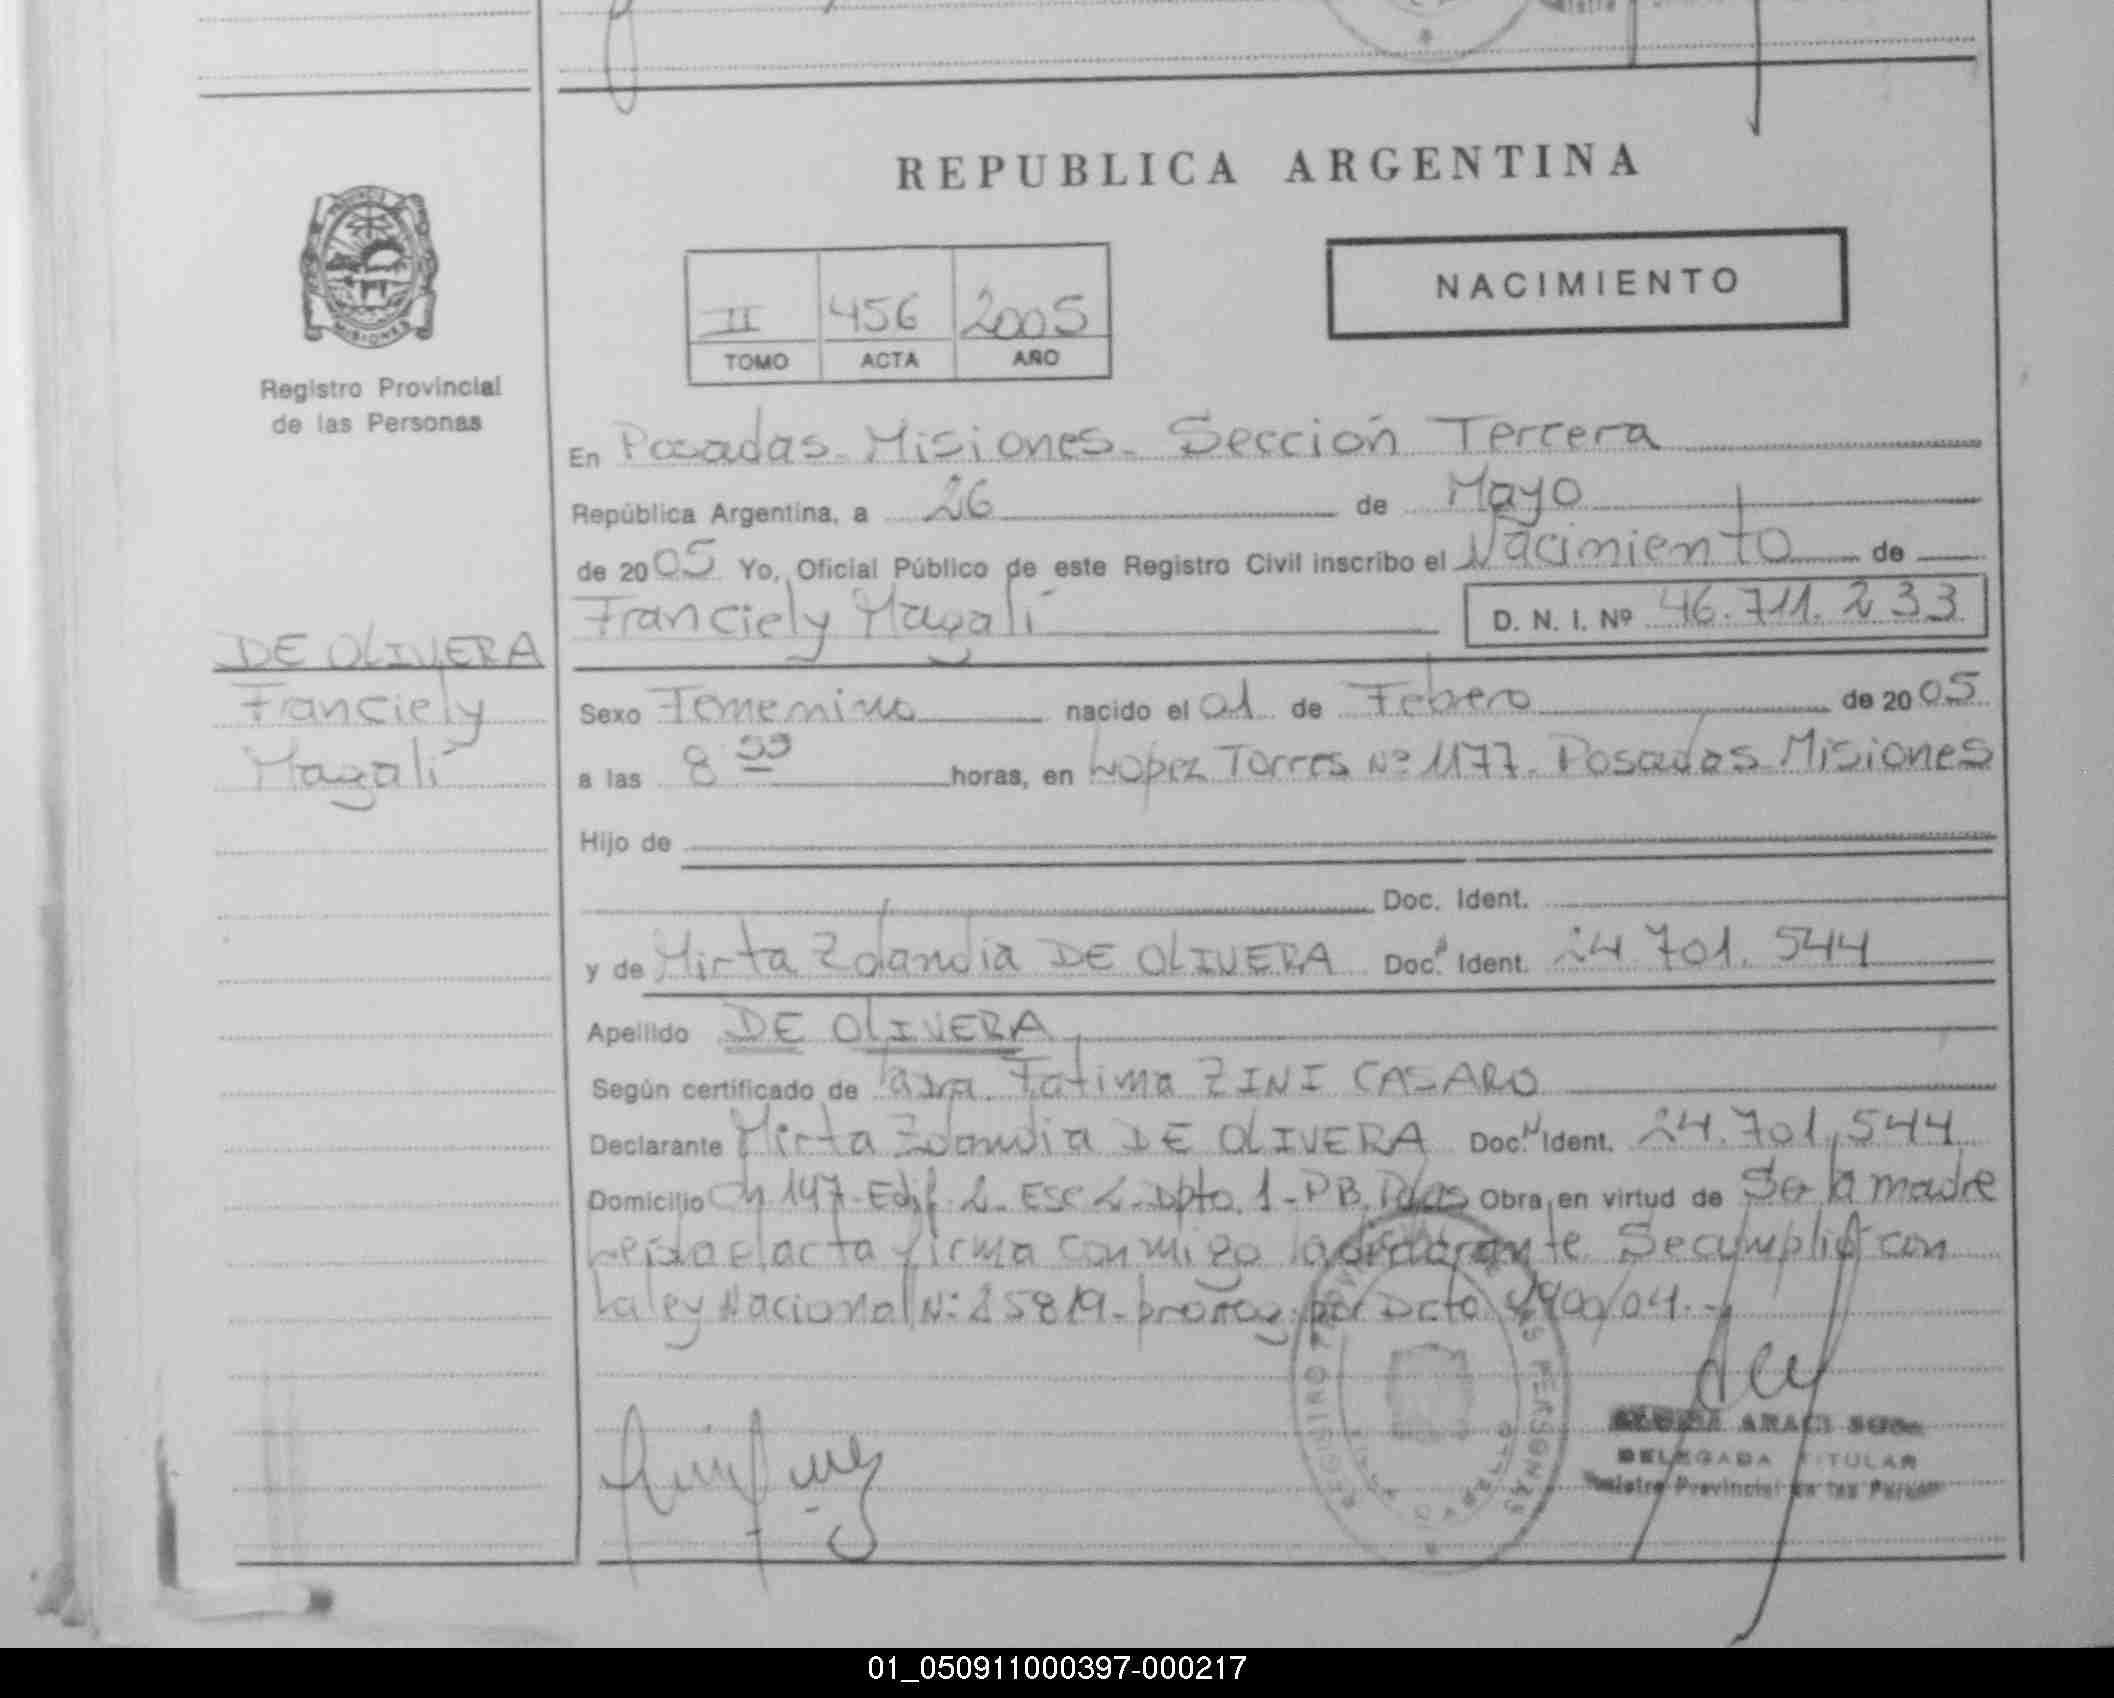 REPUBLICA ARGENTINA
NACIMIENTO
II 456 2005
TOMO ACTA AÑO
Registro Provincial
de las Personas
En Posadas - Misiones - Sección Tercera
República Argentina, a 26 de Mayo
de 2005 Yo, Oficial Público de este Registro Civil inscribo el Nacimiento de
Franciely Magalí D. N. I. Nº 46.711.233
DE OLIVERA
Franciely
Magalí
Sexo Femenino nacido el 01 de Febrero de 2005
a las 8 horas, en Lopez Torres Nº 1177. Posadas Misiones
Hijo de
Doc. Ident.
y de Mirta Zolandia DE OLIVERA Doc. Ident. 24.701.544
Apellido DE OLIVERA
Según certificado de Fatima ZINI CASARO
Declarante Mirta Zolandia DE OLIVERA Doc. Ident. 24.701.544
Domicilio Ch 147 - Edif. 2 - Esc 2 - Dpto. 1 - PB. Pdas Obra en virtud de Ser la madre
Leída el acta firma conmigo la declarante. Se cumplió con
La ley Nacional Nº 25819 - por Dcto 1900/04.-
REGISTRO PROVINCIAL DE LAS PERSONAS
ARACI
DELEGADA TITULAR
Registro Provincial de las Personas
01_050911000397-000217